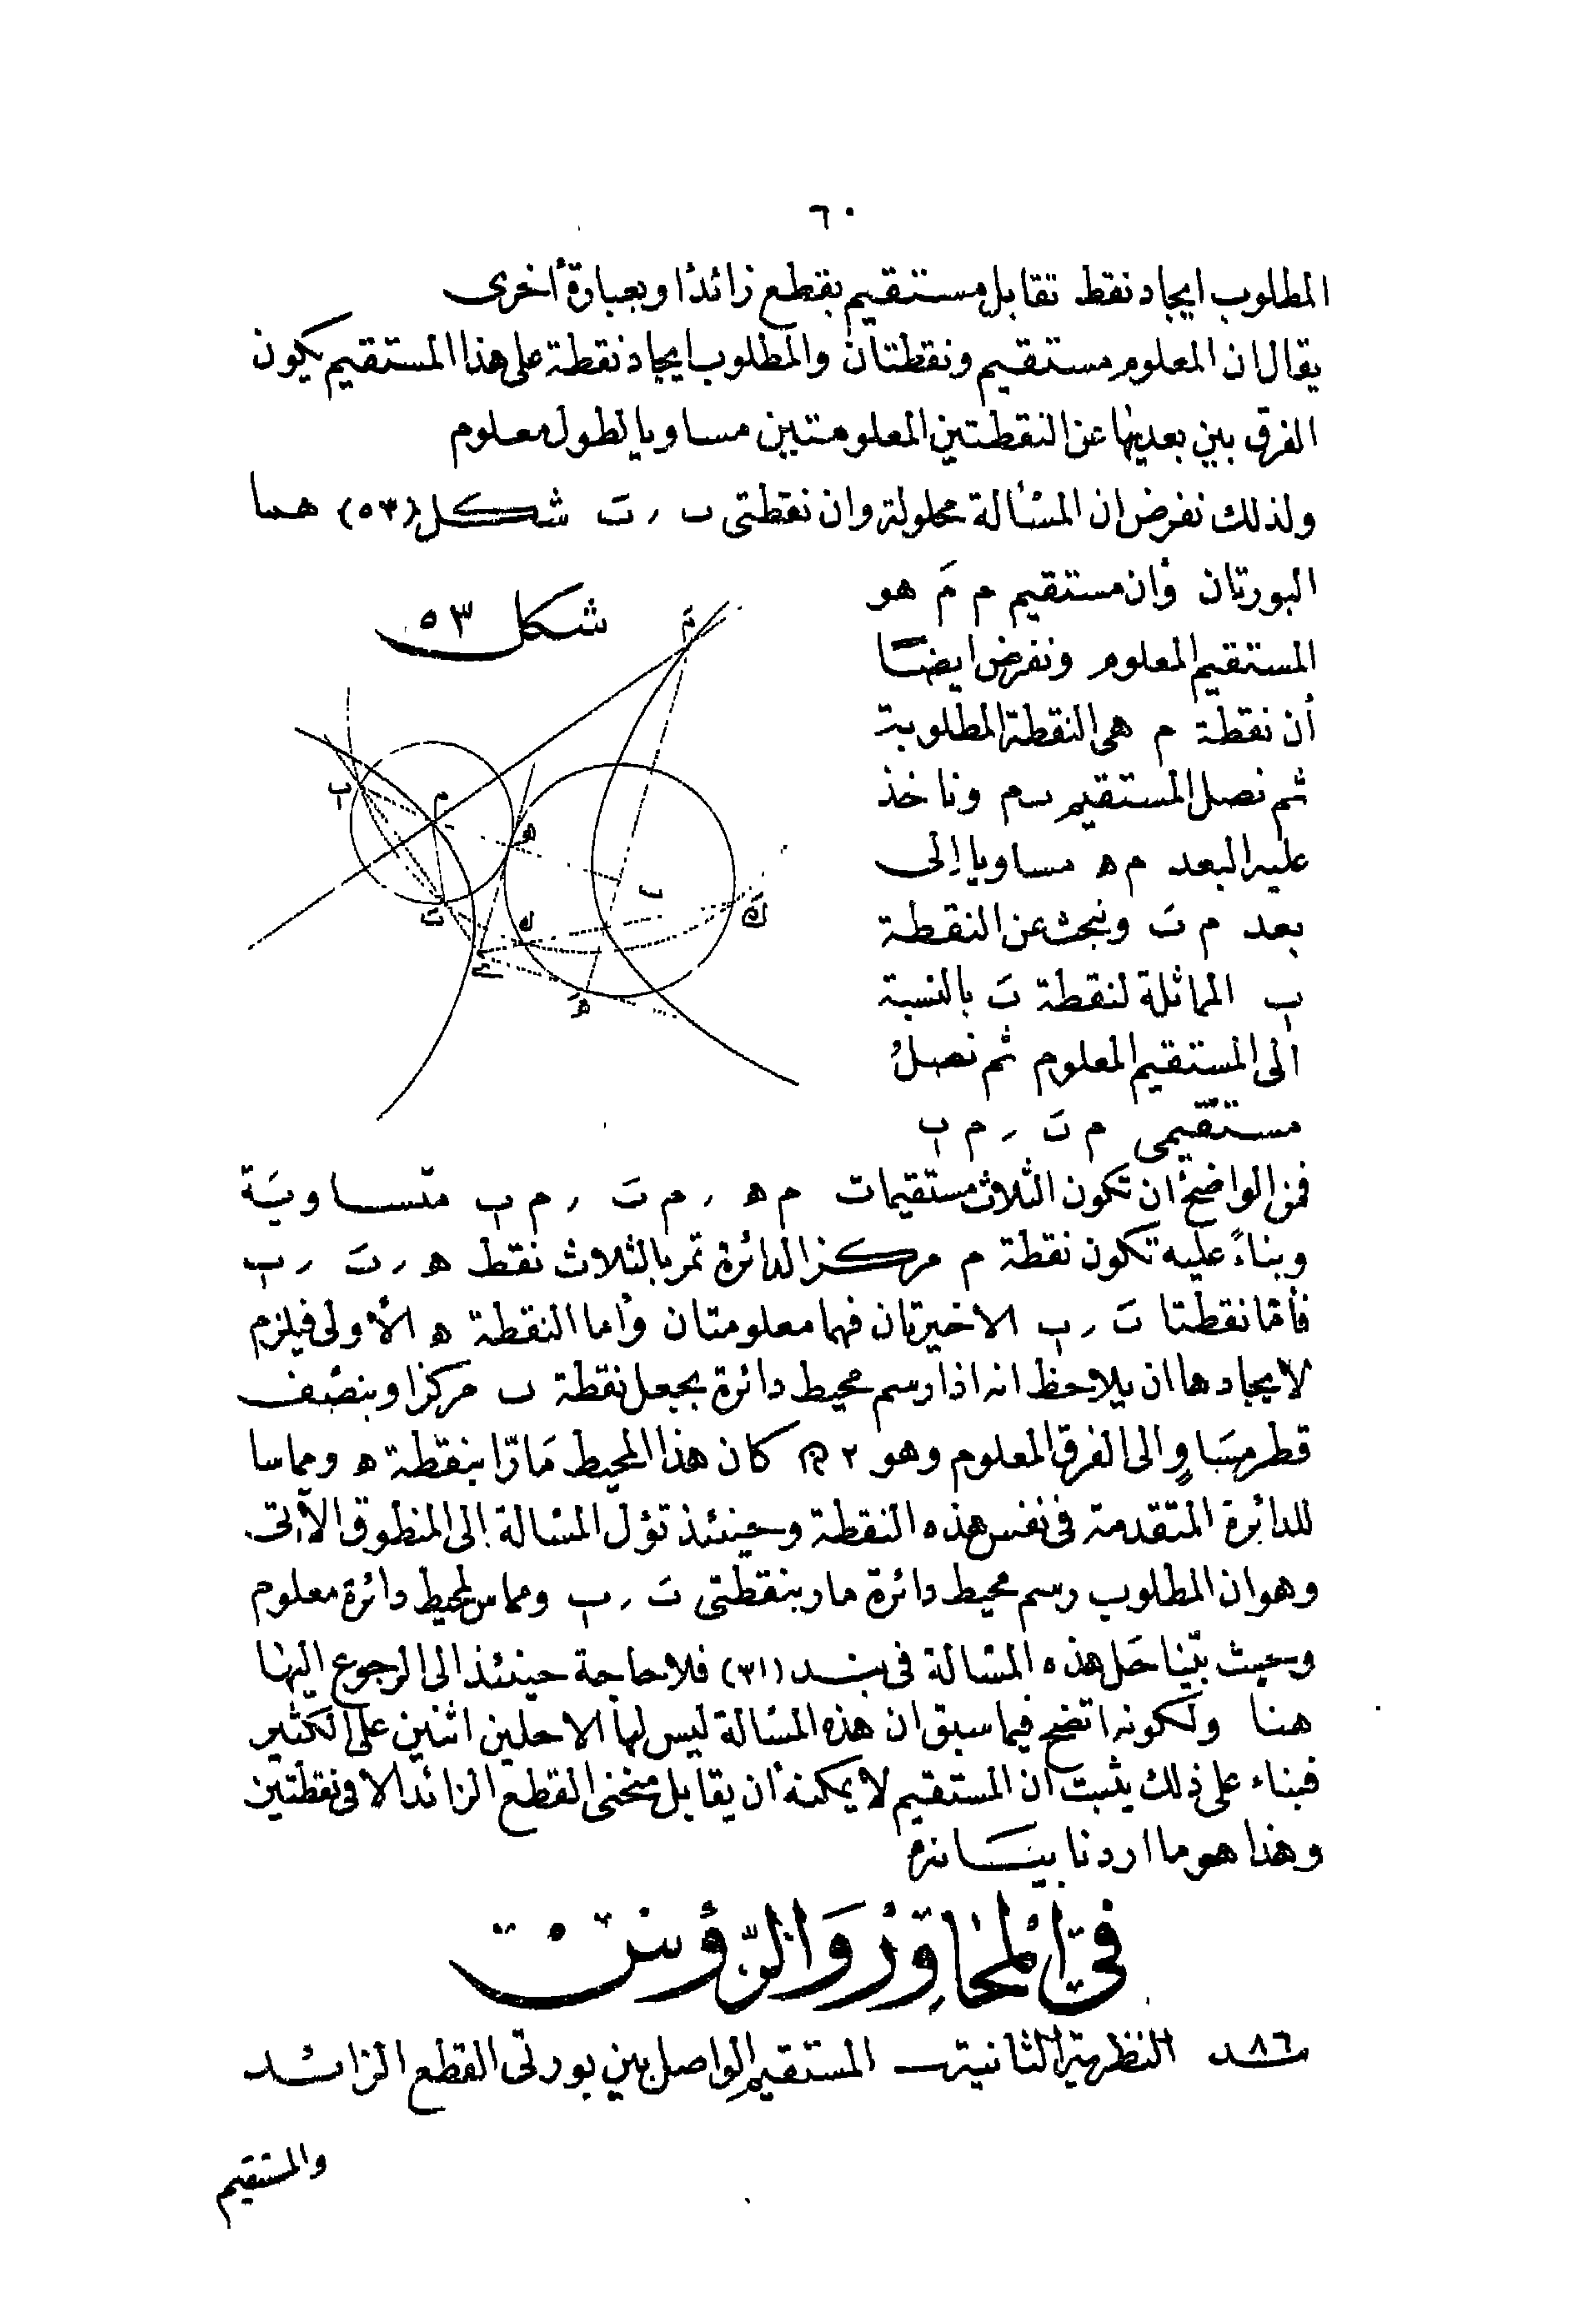 ٦٠
المطلوب ايجاد نقط تقابل مستقيم بقطع زائدا وبعبارة أخرى
يقال ان المعلوم مستقيم ونقطتان والمطلوب ايجاد نقطة على هذا المستقيم يكون
الفرق بين بعديها عن النقطتين المعلومتين مساويا لطول معلوم
ولذلك نفرض ان المسألة محلولة وان نقطتى ب ر بَ شكل (٥٣) هما
البورتان وان مستقيم م مَ هو
المستقيم المعلوم ونفرض ايضا
أن نقطة م هى النقطة المطلوبة
ثم نصل المستقيم ب م وناخذ
عليه البعد م ه مساويا إلى
بعد م بَ ونبحث عن النقطة
پ المماثلة لنقطة بَ بالنسبة
الى المستقيم المعلوم ثم نصل
مستقيمى م بَ ر م پ
شكل ٥٣
مَ
پ
م
ه
ب
بَ
ك
كَ
ع
هَ
فمن الواضح ان تكون الثلاث مستقيمات م ه ر م بَ ر م پ متساوية
وبناءً عليه تكون نقطة م مركز الدائرة تمر بالثلاث نقط ه ر بَ ر پ
فأما نقطتا بَ ر پ الاخيرتان فهما معلومتان وأما النقطة ه الأولى فيلزم
لايجادها ان يلاحظ انه اذا رسم محيط دائرة بجعل نقطة ب مركزا وبنصف
قطر مساوٍ الى الفرق المعلوم وهو ٢ كان هذا المحيط مارّا بنقطة ه ومماسا
للدائرة المتقدمة فى نفس هذه النقطة وحينئذ تؤل المسألة إلى المنطوق الآتى
وهو ان المطلوب رسم محيط دائرة مار بنقطتى بَ ر پ ومماس لمحيط دائرة معلوم
وحيث بيّنا حَل هذه المسألة فى بند (٣١) فلا حاجة حينئذ الى الرجوع اليها
هنا ولكونه اتضح فيما سبق ان هذه المسألة ليس لها الا حلين اثنين على الكثير
فبناء على ذلك يثبت ان المستقيم لا يمكنه أن يقابل منحنى القطع الزائد الا فى نقطتين
وهذا هو ما اردنا بيانه
فى المحاور والرؤس
بند ٨٦ النظرية الثانية ـ المستقيم الواصل بين بورتى القطع الزائد
والمستقيم